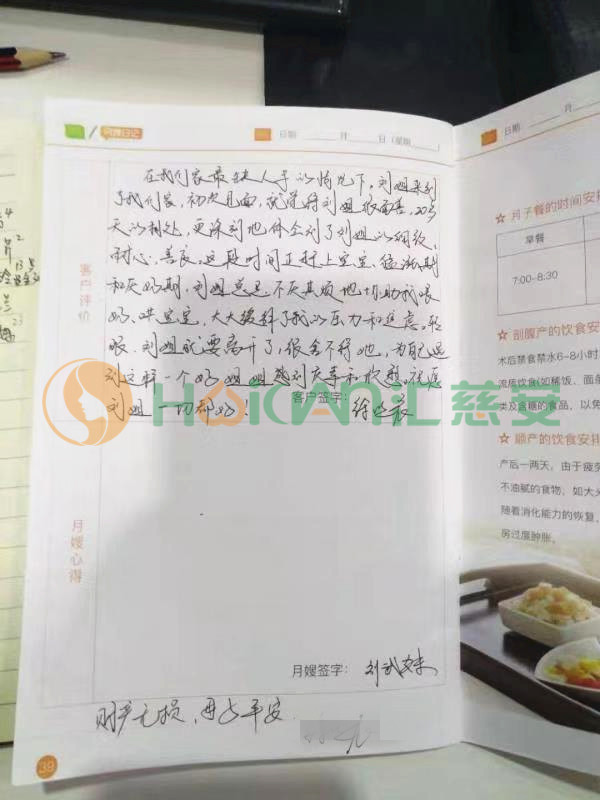 月嫂日记
日期 月 日(星期 )
在我们家最缺人手的情况下,刘姐来到
了我们家,初次见面,就觉得刘姐很面善,20多
天的相处,更深刻地体会到了刘姐的细致、
耐心、善良。这段时间正赶上宝宝猛涨期
和厌奶期,刘姐总是不厌其烦地协助我喂
奶、哄宝宝,大大缓解了我的压力和焦虑。转
眼,刘姐就要离开了,很舍不得她,为自己遇
到这样一个好姐姐感到庆幸和欣慰。祝愿
刘姐一切都好!
客户评价
客户签字:
月嫂心得
月嫂签字:
财产无损,母女平安
39
HOIKIAN汇慈安
日期 月
月子餐的时间安排
早餐
7:00-8:30
剖腹产的饮食安
术后禁食禁水6-8小时
流质饮食(如稀饭、面条
类及含糖的食品,以免
顺产的饮食安排
产后一两天,由于疲劳
不油腻的食物,如大米
随着消化能力的恢复,
房过度肿胀。